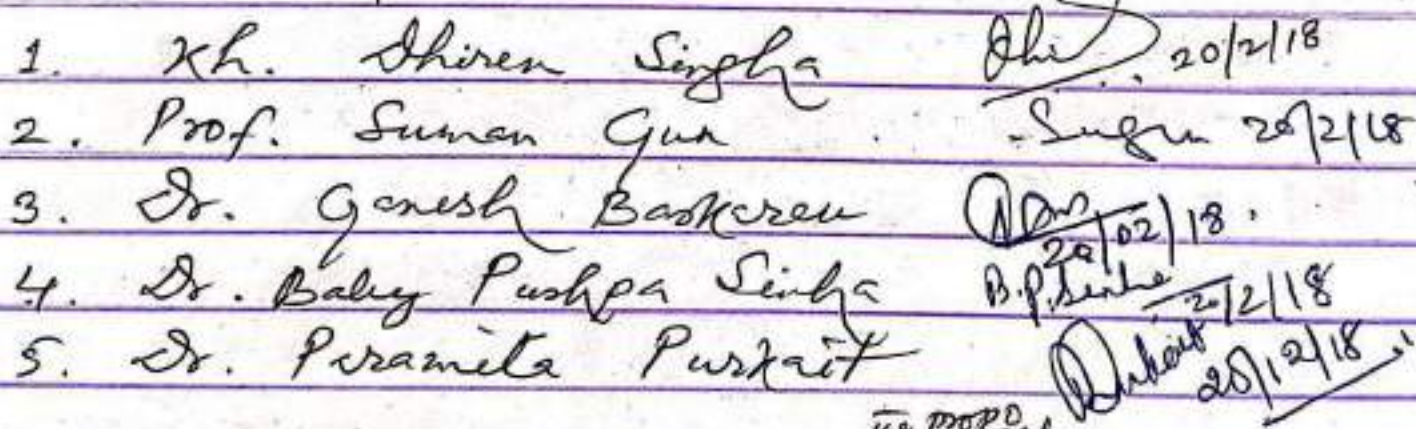 1. Kh. Dhiren Singha 20/2/18
2. Prof. Suman Gun 20/2/18
3. Dr. Ganesh Baskaren 20/02/18.
4. Dr. Baby Pushpa Sinha B.P. Sinha 20/2/18
5. Dr. Paramita Purkait Purkait 20/2/18